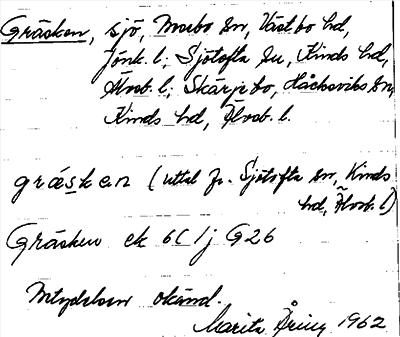 Gräsken, sjö, Morbo sn, Västbo hd,
Jönk. l; Sjötofta sn, Kinds hd,
Älvsb. l; Skärpbo, Håcksviks sn,
Kinds hd, Älvsb. l.
græsken (uttal fr. Sjötofta sn, Kinds
hd, Älvsb. l)
Gräsken ek 6C 1j G26
Mtydelsen okänd.
Marita 1962